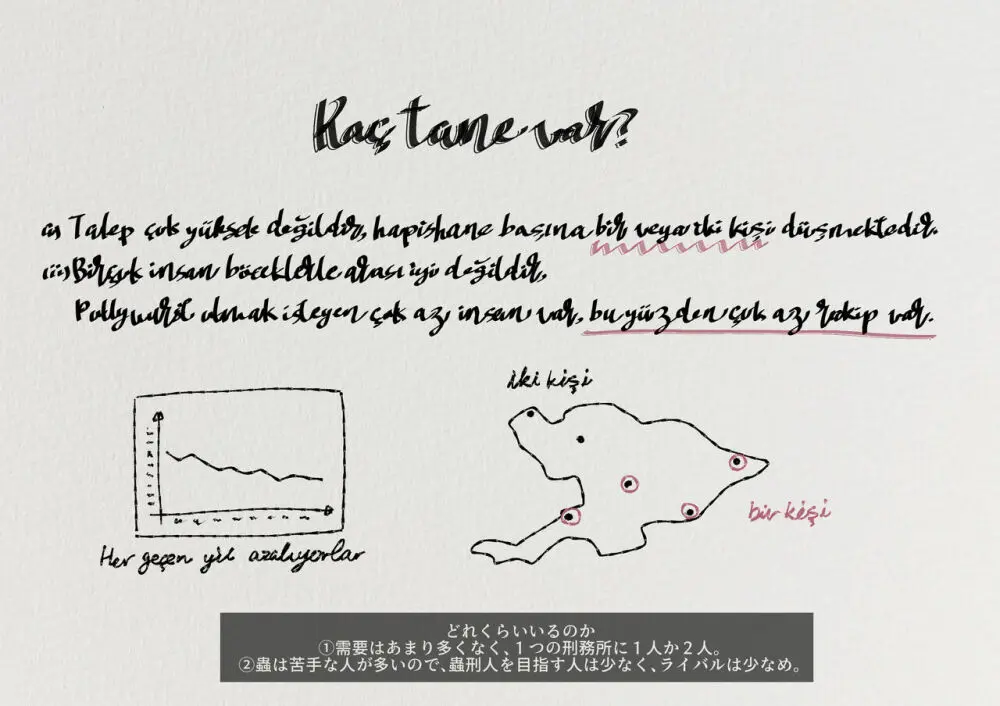 Kaç tane var?
i) Talep çok yüksek değildir, hapishane başına bir veya iki kişi düşmektedir.
ii) Birçok insan böceklerle arası iyi değildir,
olmak isteyen çok azı insan var, bu yüzden çok azı rakip var.
iki kişi
bir kişi
Her geçen yıl azalıyorlar
どれくらいいるのか
①需要はあまり多くなく、1つの刑務所に1人か2人。
②蟲は苦手な人が多いので、蟲刑人を目指す人は少なく、ライバルは少なめ。